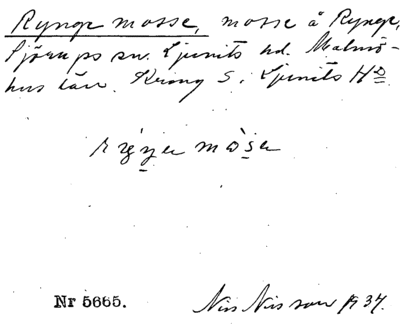 Rynge mosse, mosse å Rynge,
Sjörups sn. Ljunits hd. Malmö-
hus län. Krong S. Ljunits Hd
mòsen
Nr 5665.
Nils Nilsson 1937.